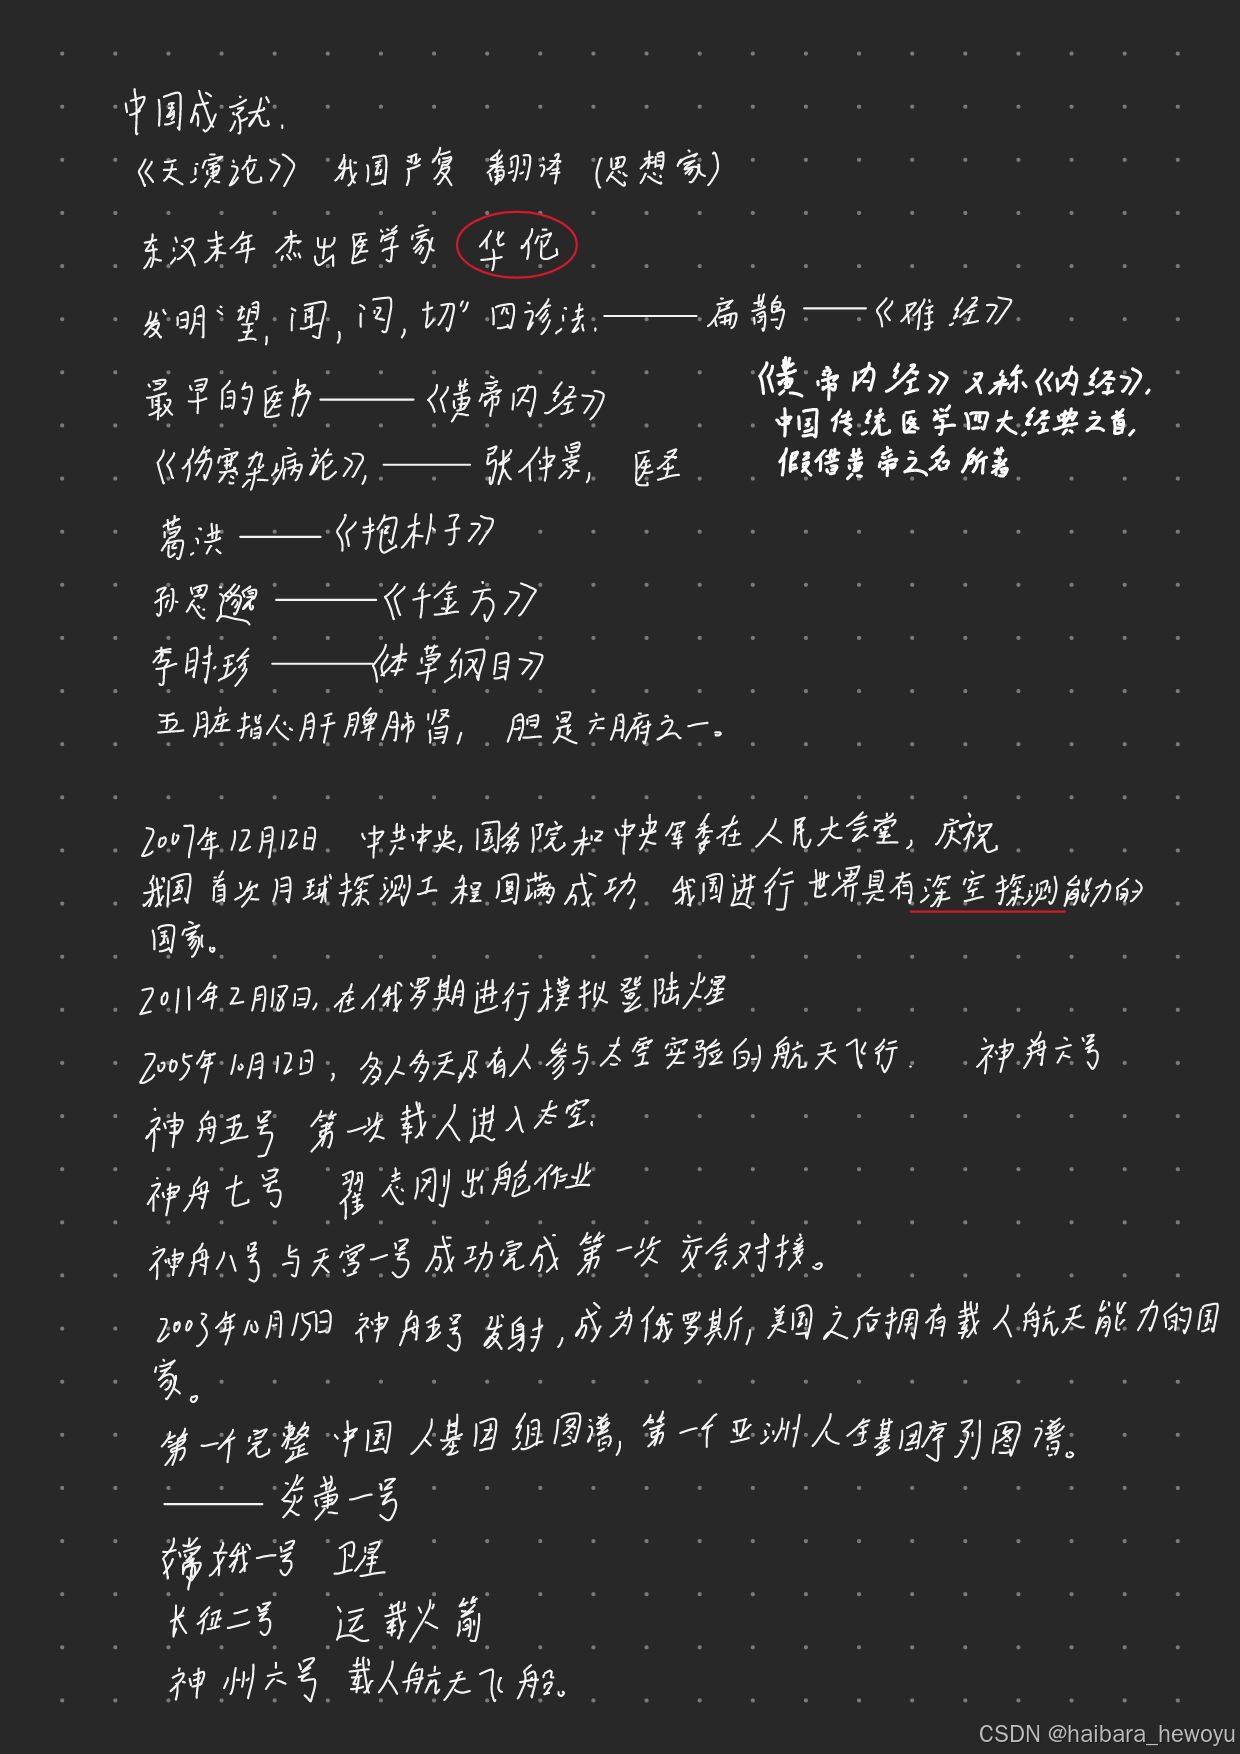 中国成就.
《天演论》 我国严复 翻译 (思想家)
东汉末年 杰出医学家 华佗
发明“望,闻,问,切” 四诊法.——扁鹊——《难经》
最早的医书——《黄帝内经》
《黄帝内经》又称《内经》,
中国传统医学四大经典之首,
假借黄帝之名所著
《伤寒杂病论》,——张仲景, 医圣
葛洪——《抱朴子》
孙思邈——《千金方》
李时珍——《本草纲目》
五脏指心肝脾肺肾, 胆是六腑之一。
2007年12月12日 中共中央,国务院和中央军委在人民大会堂,庆祝
我国首次月球探测工程圆满成功, 我国进行世界具有深空探测能力的
国家。
2011年2月18日,在俄罗斯进行模拟登陆火星
2005年10月12日,多人多天及有人参与太空实验的航天飞行. 神舟六号
神舟五号 第一次载人进入太空.
神舟七号 翟志刚出舱作业
神舟八号与天宫一号成功完成第一次交会对接。
2003年10月15日 神舟五号发射,成为俄罗斯,美国之后拥有载人航天能力的国
家。
第一个完整中国人基因组图谱,第一个亚洲人全基因序列图谱。
——炎黄一号
嫦娥一号 卫星
长征二号 运载火箭
神州六号 载人航天飞船。
CSDN @haibara_hewoyu